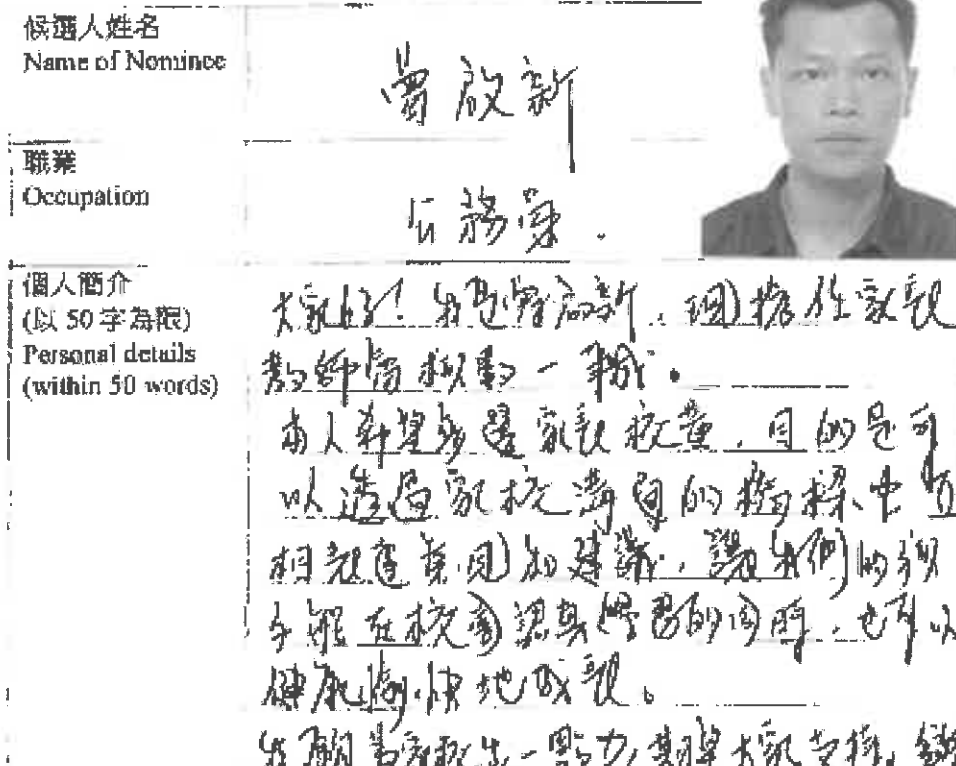 候選人姓名
Name of Nominee
曾啟新
職業
Occupation
公務員.
個人簡介
(以 50 字為限)
Personal details
(within 50 words)
大家好!我是曾啟新,現擔任家教
教師
本人希望參選家教校董,目的是可
以透過家校溝通的橋樑,中互
相表達意見和建議,讓我們的
子能在校園認真學習的同時,也可以
健康愉快地成
我願為家校出一點力,期望大家支持